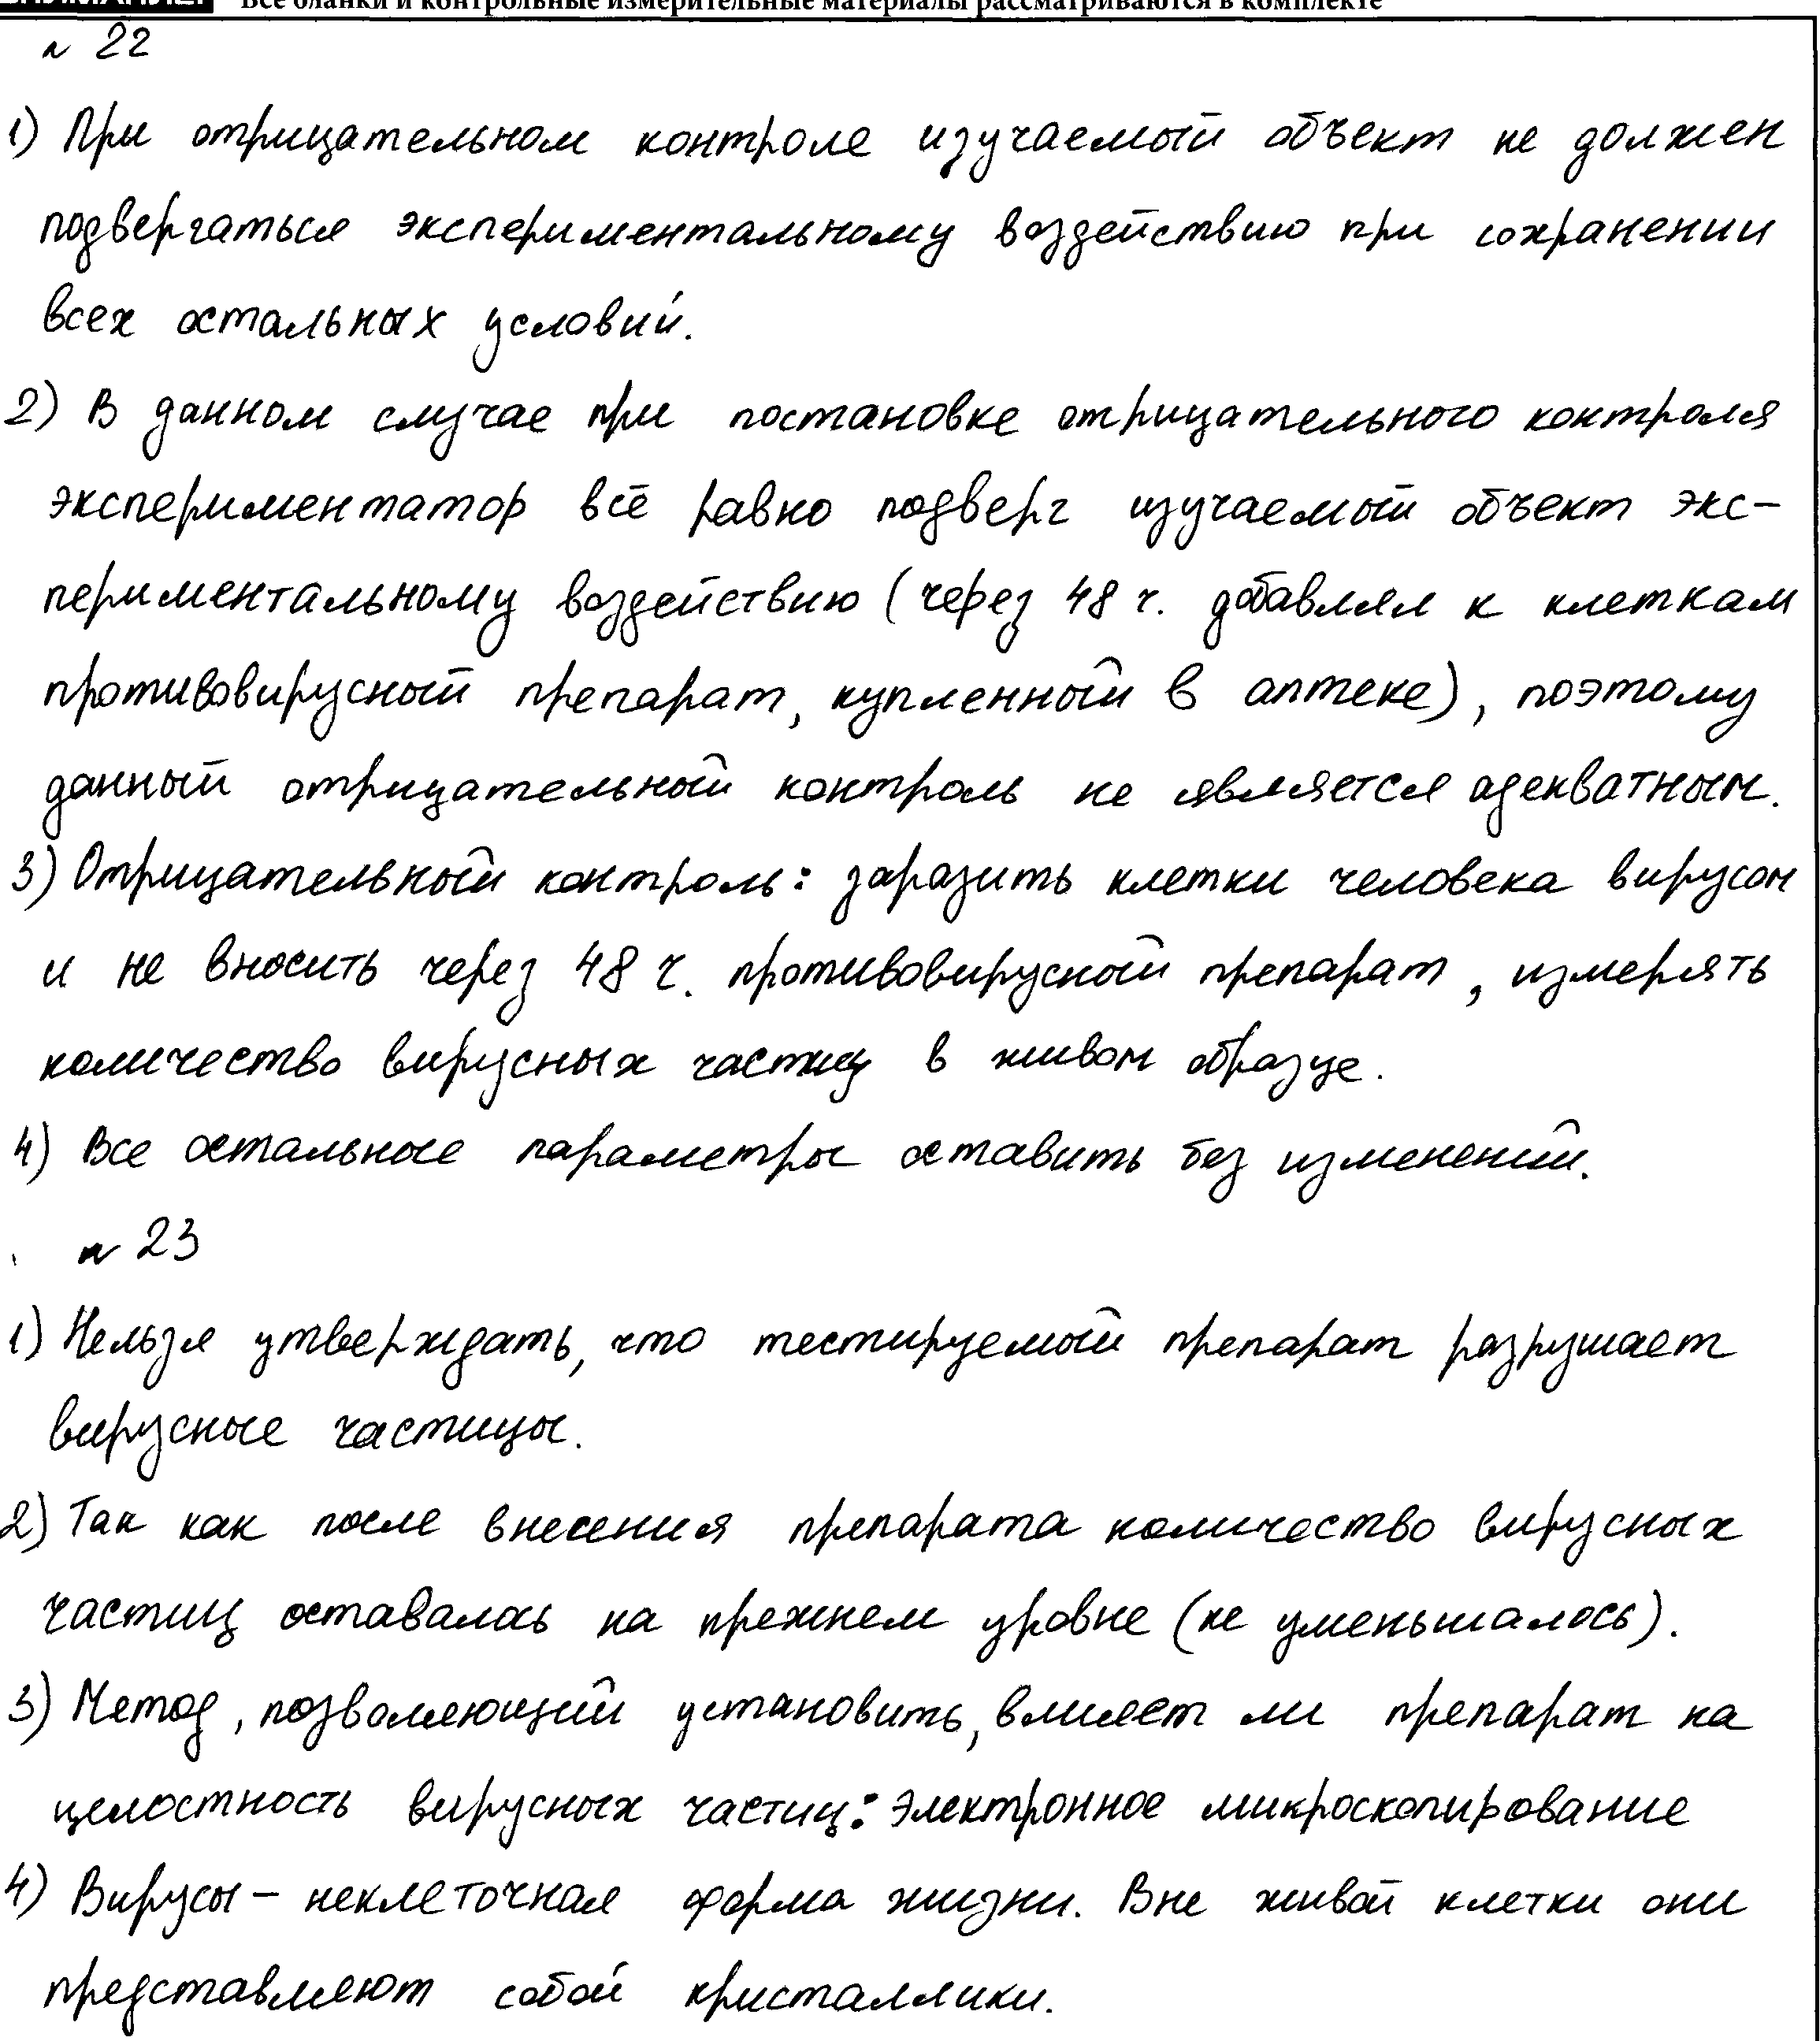 Все бланки и контрольные измерительные материалы рассматриваются в комплекте
№ 22
1) При отрицательном контроле изучаемый объект не должен
подвергаться экспериментальному воздействию при сохранении
всех остальных условий.
2) В данном случае при постановке отрицательного контроля
экспериментатор всё равно подверг изучаемый объект экс-
периментальному воздействию (через 48 ч. добавлял к клеткам
противовирусный препарат, купленный в аптеке), поэтому
данный отрицательный контроль не является адекватным.
3) Отрицательный контроль: заразить клетки человека вирусом
и не вносить через 48 ч. противовирусный препарат, измерять
количество вирусных частиц в живом образце.
4) Все остальные параметры оставить без изменений.
№ 23
1) Нельзя утверждать, что тестируемый препарат разрушает
вирусные частицы.
2) Так как после внесения препарата количество вирусных
частиц оставалось на прежнем уровне (не уменьшалось).
3) Метод, позволяющий установить, влияет ли препарат на
целостность вирусных частиц: электронное микроскопирование
4) Вирусы – неклеточная форма жизни. Вне живой клетки они
представляют собой кристаллики.